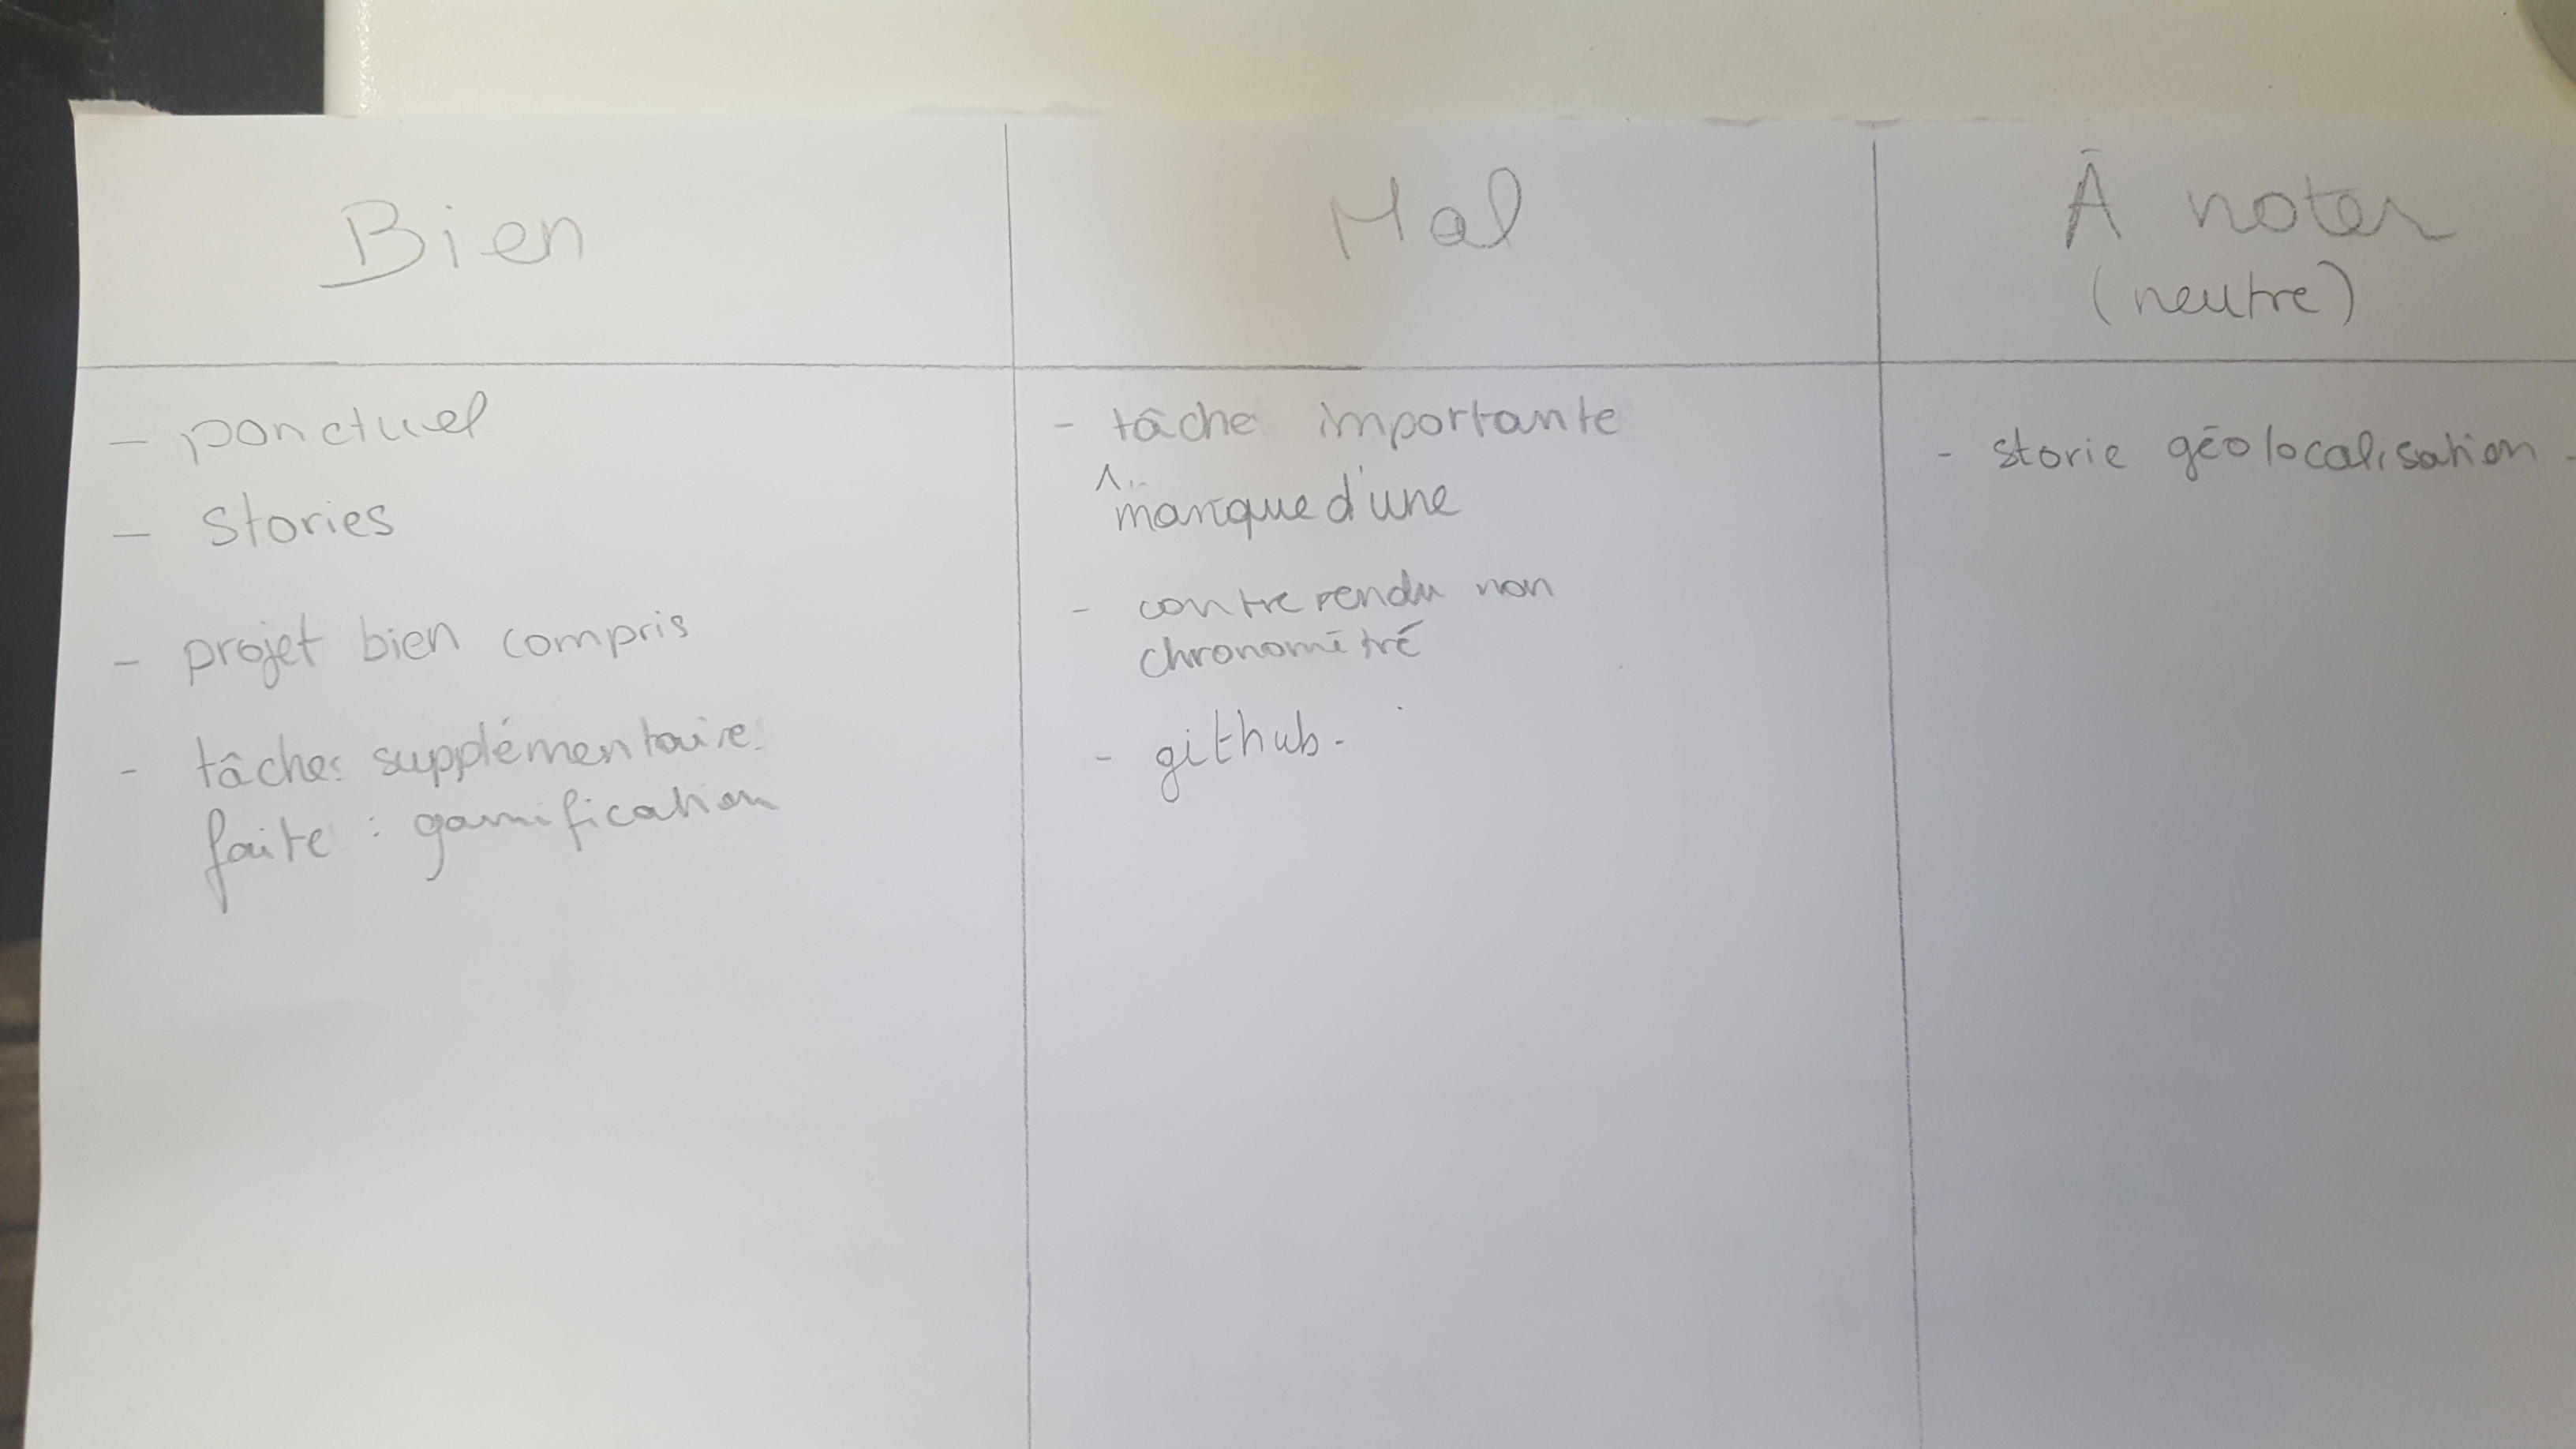 Bien
Mal
À noter
(neutre)
- ponctuel
- Stories
- projet bien compris
- tâche supplémentaire
faite : gamification
- tâche importante
manque d'une
- contre rendu non
chronométré
- github.
- storie géolocalisation.